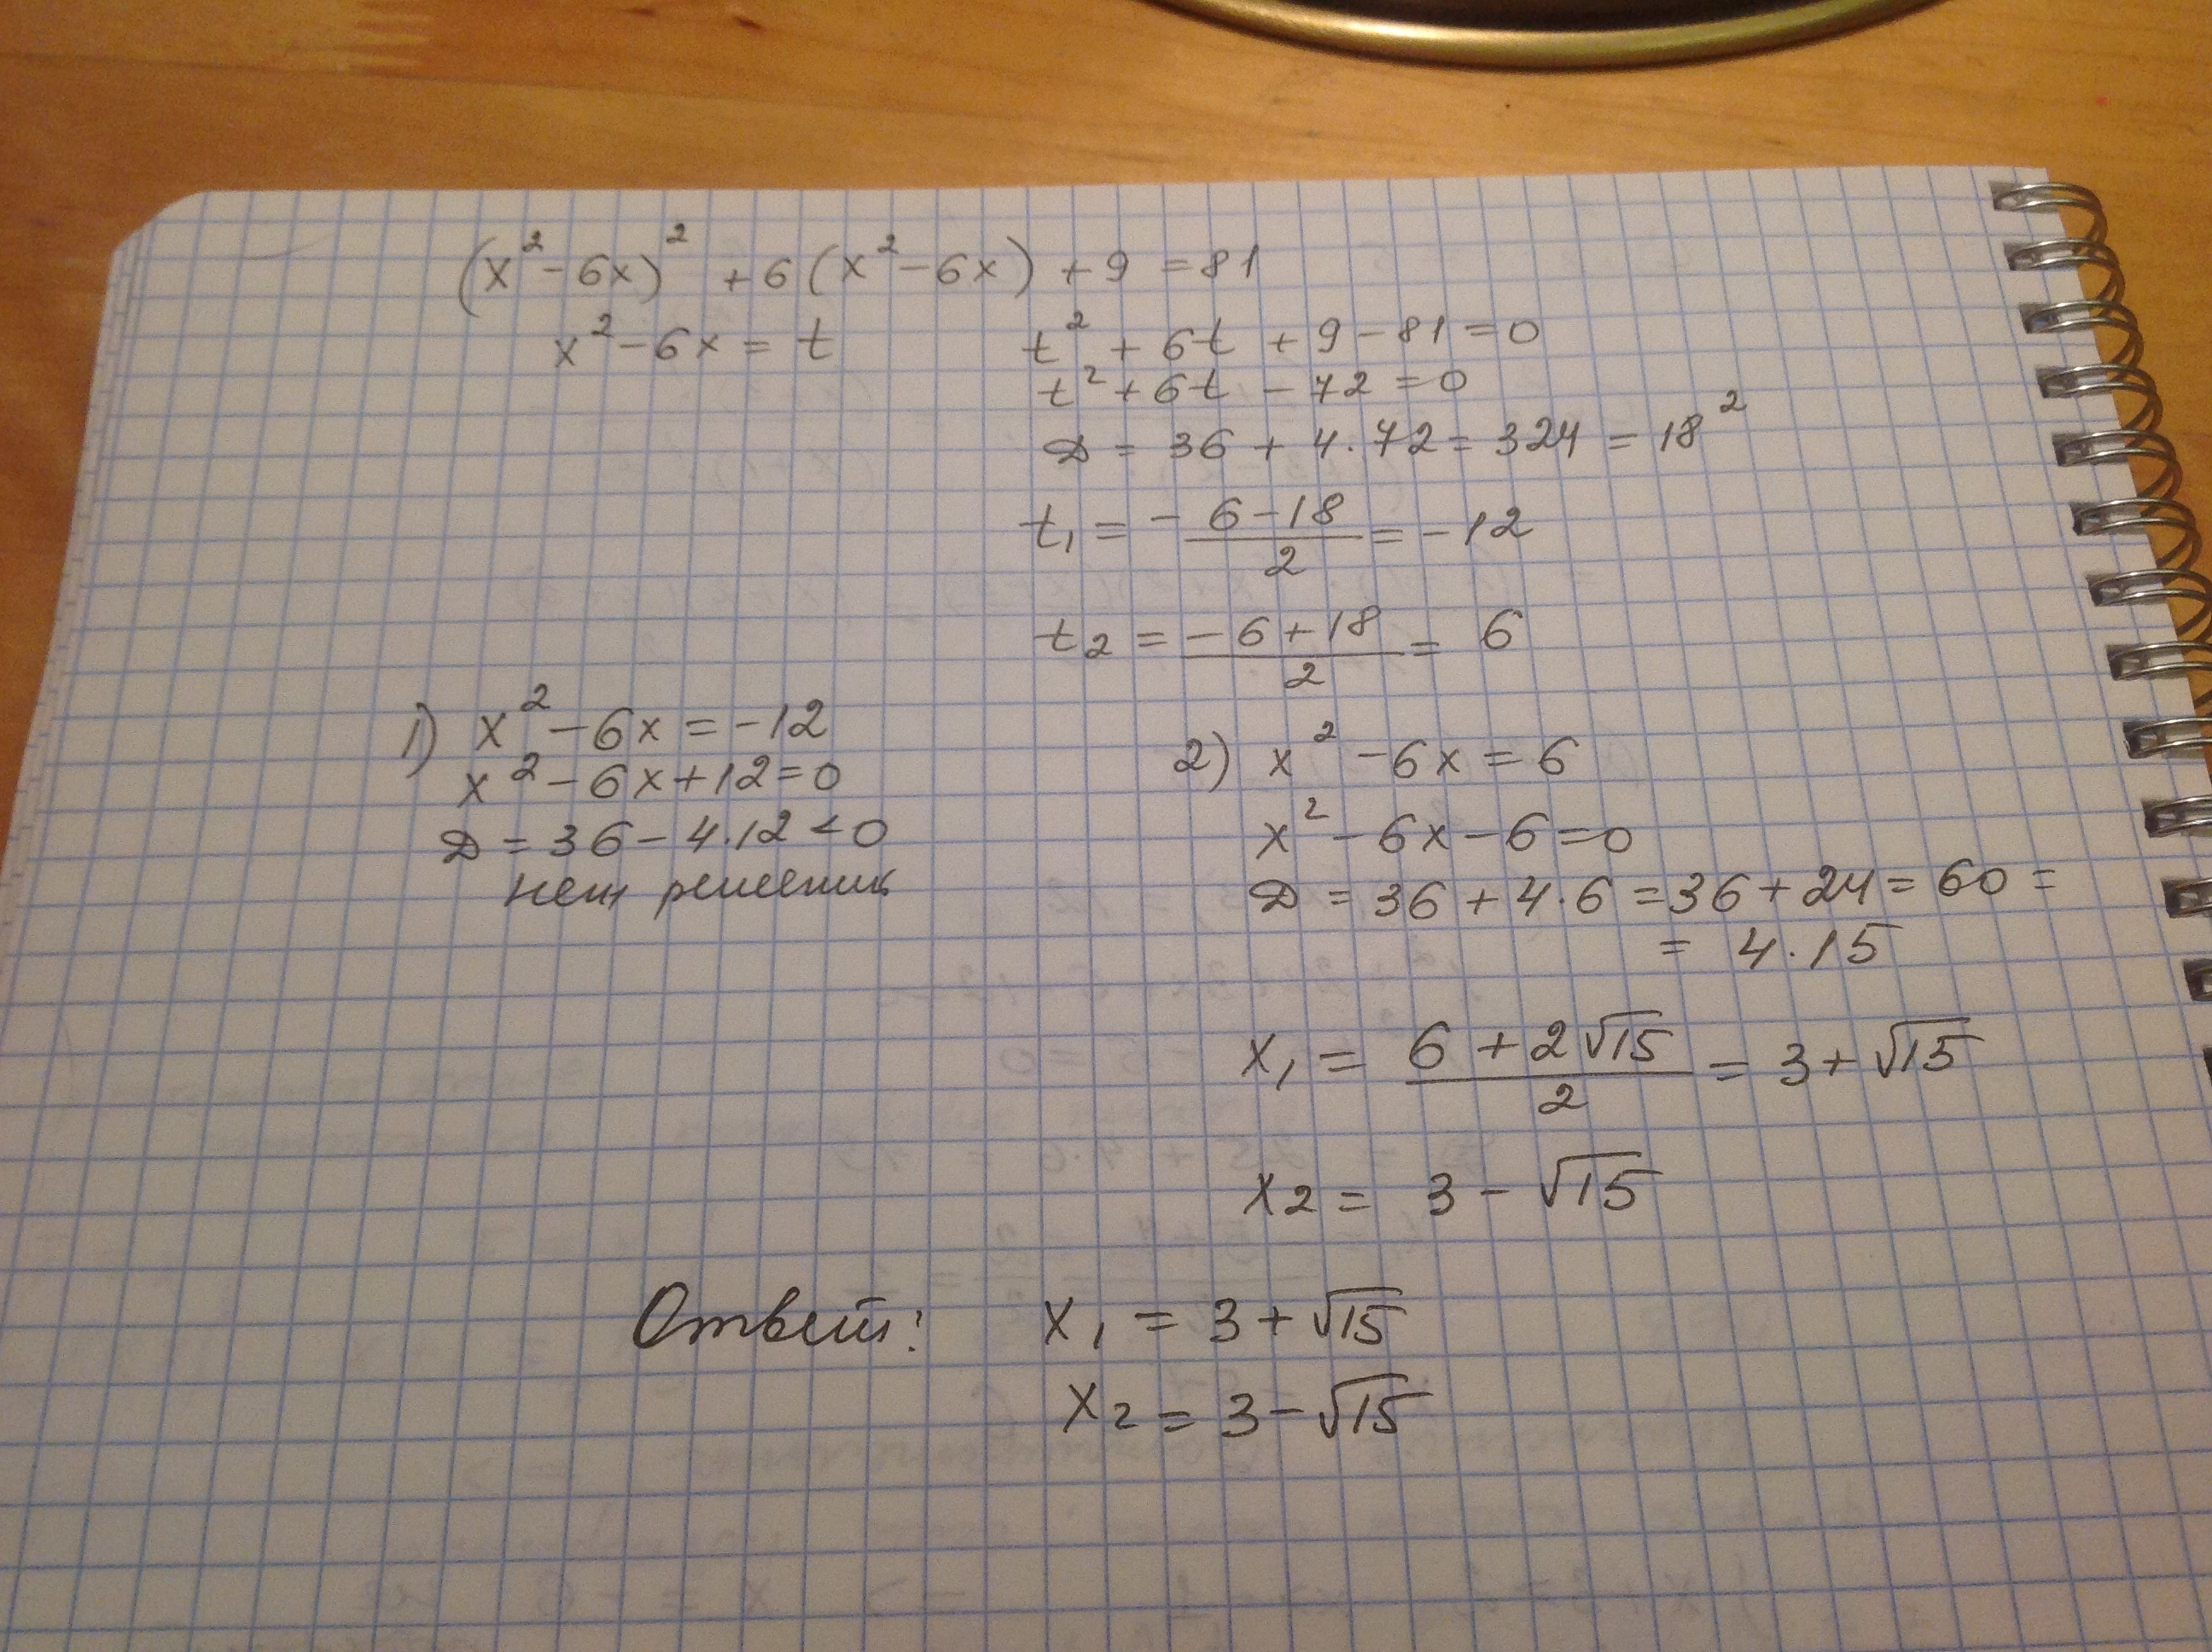 (x²-6x)² +6(x²-6x) +9 =81
x²-6x = t
t² + 6t + 9-81=0
t²+6t -72=0
D = 36 + 4·72=324 = 18²
t₁ = - 6-18/2 = -12
t₂ = -6+18/2 = 6
1) x²-6x=-12
x²-6x+12=0
D=36-4·12<0
нет решения
2) x²-6x=6
x²-6x-6=0
D = 36+4·6=36+24=60=
= 4·15
x₁ = 6+2√15/2 = 3+√15
x₂ = 3-√15
Ответ: x₁ = 3+√15
x₂ = 3-√15